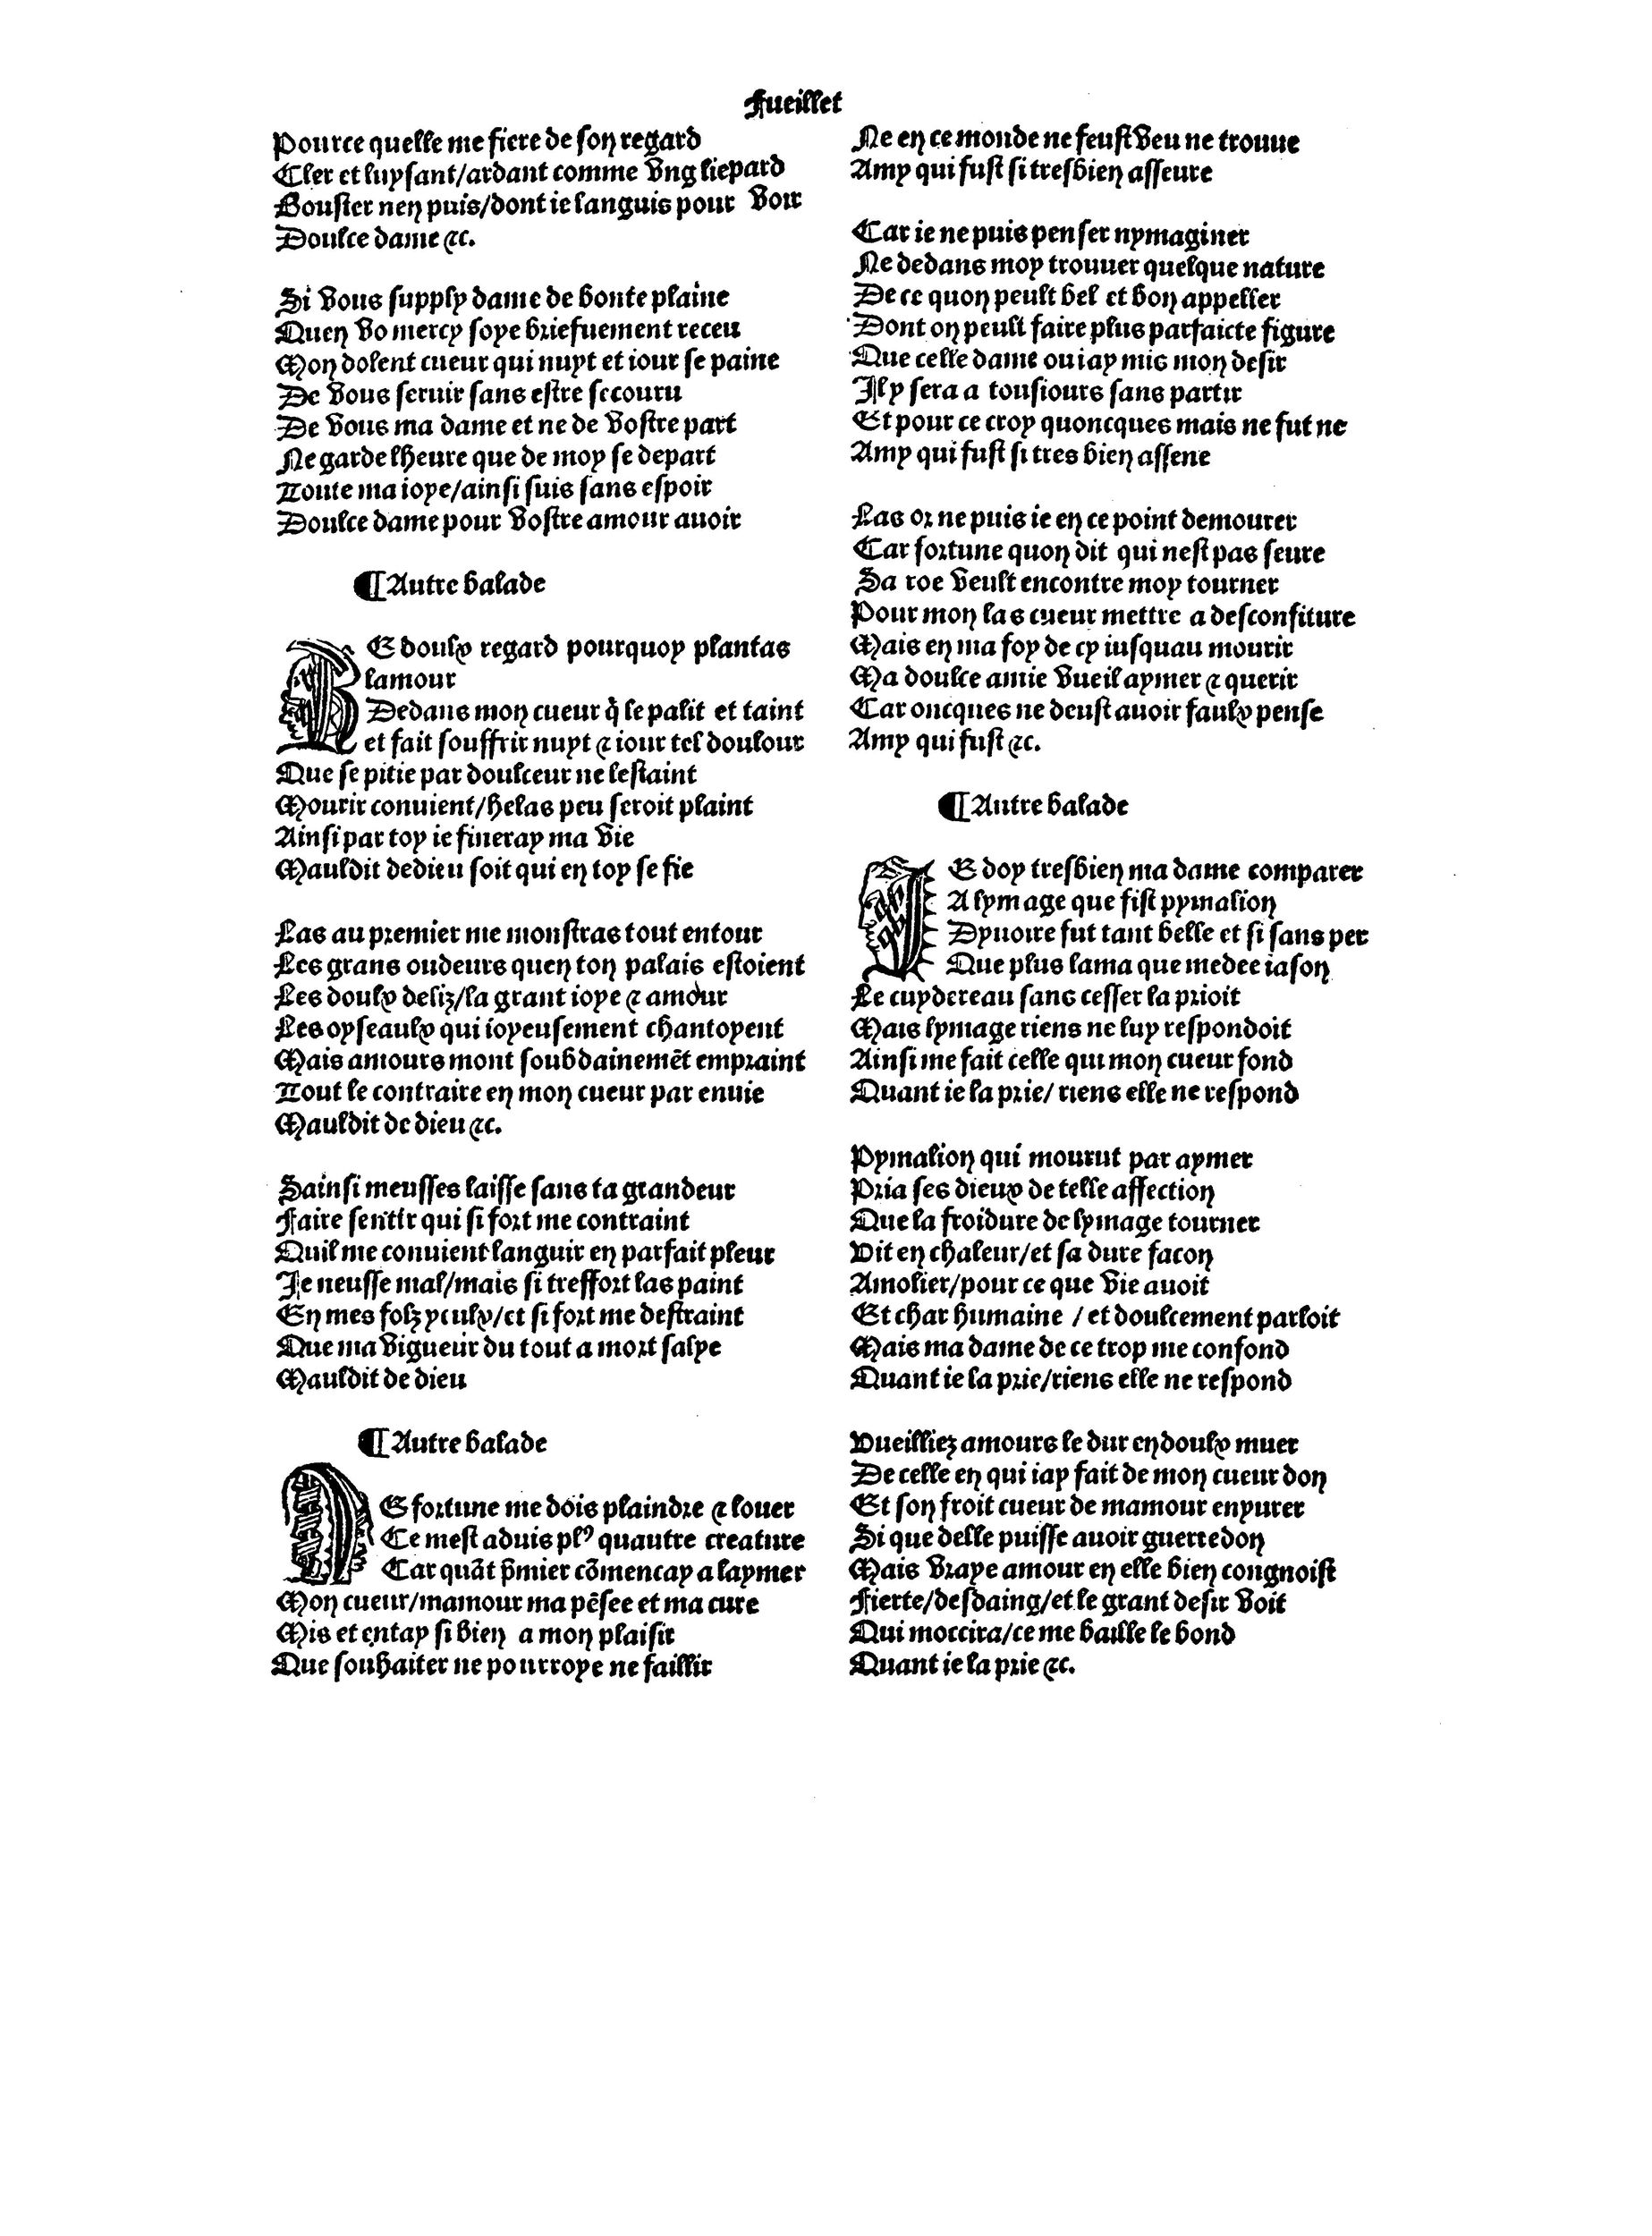 Fueillet
Pource quelle me fiere de son regard
Cler et luysant/ardant comme ung liepard
Gouster nen puis/dont ie languis pour voir
Doulce dame ⁊c.
Si vous supply dame de bonte plaine
Quen vo mercy soye briefuement receu
Mon dolent cueur qui nuyt et iour se paine
De vous seruir sans estre secouru
De vous ma dame et ne de vostre part
Ne garde lheure que de moy se depart
Toute ma ioye/ainsi suis sans espoir
Doulce dame pour vostre amour auoir
¶Autre balade
HE doulx regard pourquoy plantas
lamour
Dedans mon cueur q̄ le palit et taint
et fait souffrir nuyt ⁊ iour tel doulour
Que se pitie par doulceur ne lestaint
Mourir conuient/helas peu seroit plaint
Ainsi par toy ie fineray ma vie
Mauldit dedieu soit qui en toy se fie
Las au premier me monstras tout entour
Les grans oudeurs quen ton palais estoient
Les doulx deliz/la grant ioye ⁊ amour
Les oyseaulx qui ioyeusement chantoyent
Mais amours mont soubdainemēt empraint
Tout le contraire en mon cueur par enuie
Mauldit de dieu ⁊c.
Sainsi meusses laisse sans ta grandeur
Faire sentir qui si fort me contraint
Quil me conuient languir en parfait pleur
Je neusse mal/mais si treffort las paint
En mes folz yeulx/et si fort me destraint
Que ma vigueur du tout a mort salye
Mauldit de dieu
¶Autre balade
DE fortune me dois plaindre ⁊ louer
Ce mest aduis plꝰ quautre creature
Car quāt p̄mier cōmencay a laymer
Mon cueur/mamour ma pēsee et ma cure
Mis et entay si bien a mon plaisir
Que souhaiter ne pourroye ne faillir
Ne en ce monde ne feust veu ne trouue
Amy qui fust si tresbien asseure
Car ie ne puis penser nymaginer
Ne dedans moy trouuer quelque nature
De ce quon peult bel et bon appeller
Dont on peult faire plus parfaicte figure
Que celle dame ou iay mis mon desir
Il y sera a tousiours sans partir
Et pour ce croy quoncques mais ne fut ne
Amy qui fust si tres bien assene
Las or ne puis ie en ce point demourer
Car fortune quon dit qui nest pas seure
Sa roe veult encontre moy tourner
Pour mon las cueur mettre a desconfiture
Mais en ma foy de cy iusquau mourir
Ma doulce amie vueil aymer ⁊ querir
Car oncques ne deust auoir faulx pense
Amy qui fust ⁊c.
¶Autre balade
JE doy tresbien ma dame comparer
A lymage que fist pymalion
Dyuoire fut tant belle et si sans per
Que plus lama que medee iason
Le cuydereau sans cesser la prioit
Mais lymage riens ne luy respondoit
Ainsi me fait celle qui mon cueur fond
Quant ie la prie/ riens elle ne respond
Pymalion qui mourut par aymer
Pria ses dieux de telle affection
Que la froidure de lymage tourner
Vit en chaleur/et sa dure facon
Amolier/pour ce que vie auoit
Et char humaine / et doulcement parloit
Mais ma dame de ce trop me confond
Quant ie la prie/riens elle ne respond
Vueilliez amours le dur en doulx muer
De celle en qui iay fait de mon cueur don
Et son froit cueur de mamour enyurer
Si que delle puisse auoir guerredon
Mais vraye amour en elle bien congnoist
Fierte/desdaing/et le grant desir voit
Qui moccira/ce me baille le bond
Quant ie la prie ⁊c.